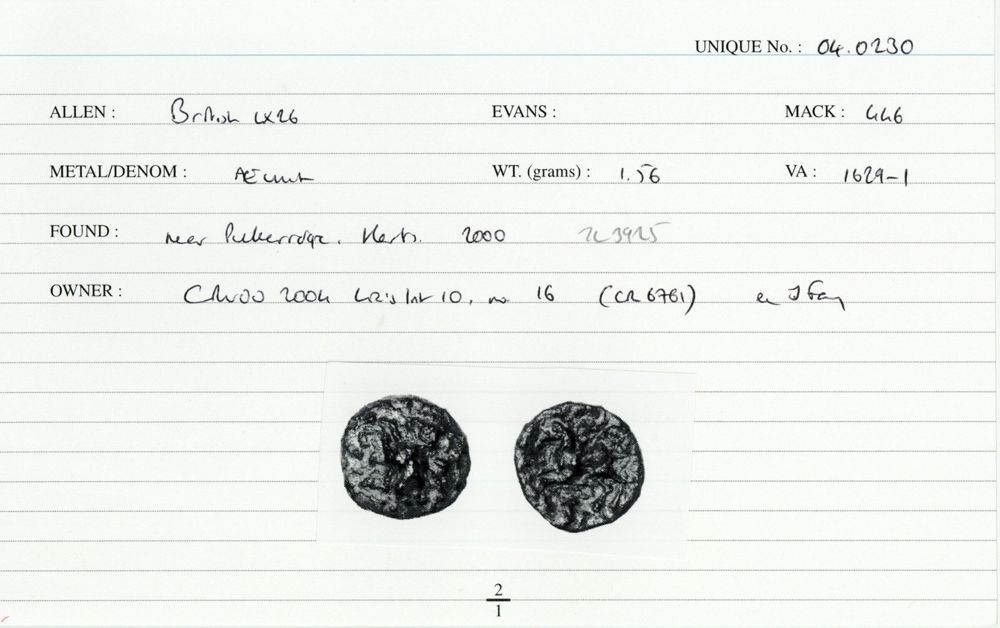 UNIQUE No. : 04.0230
ALLEN : British LX26 EVANS : MACK : 446
METAL/DENOM : AE unit WT. (grams) : 1.56 VA : 1629-1
FOUND : near Puckeridge, Herts. 2000
OWNER : 2004 List 10, no 16 (CR 6761) ex J Fay
2
1